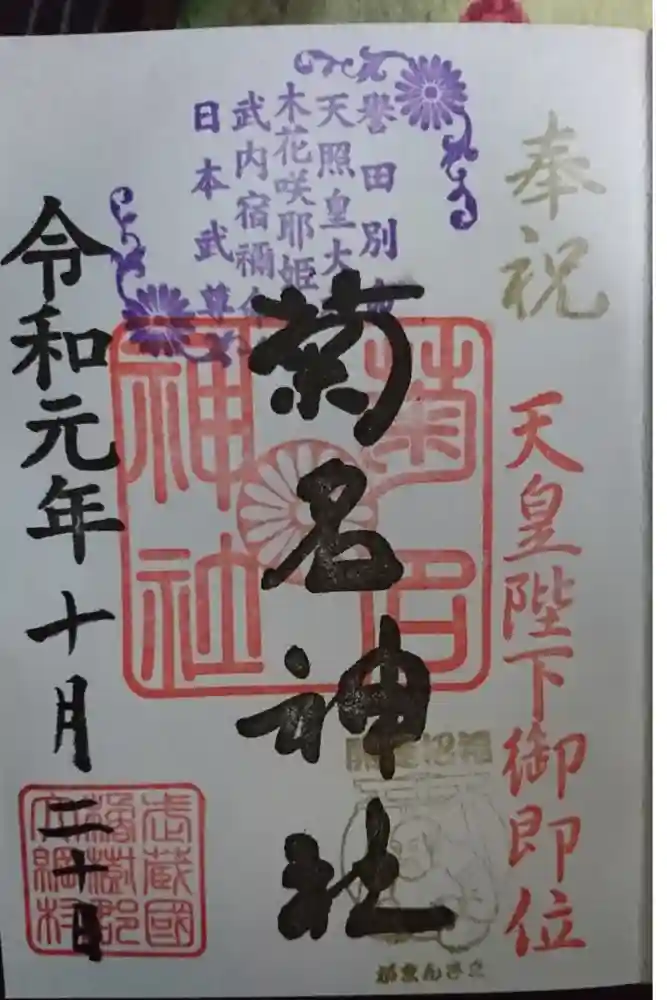 奉祝
天皇陛下御即位
誉田別命
天照皇大
木花咲耶姫
武内宿禰命
日本武尊
菊名神社
菊名神社
令和元年十月二十日
武蔵國
橘樹郡
がまんさま